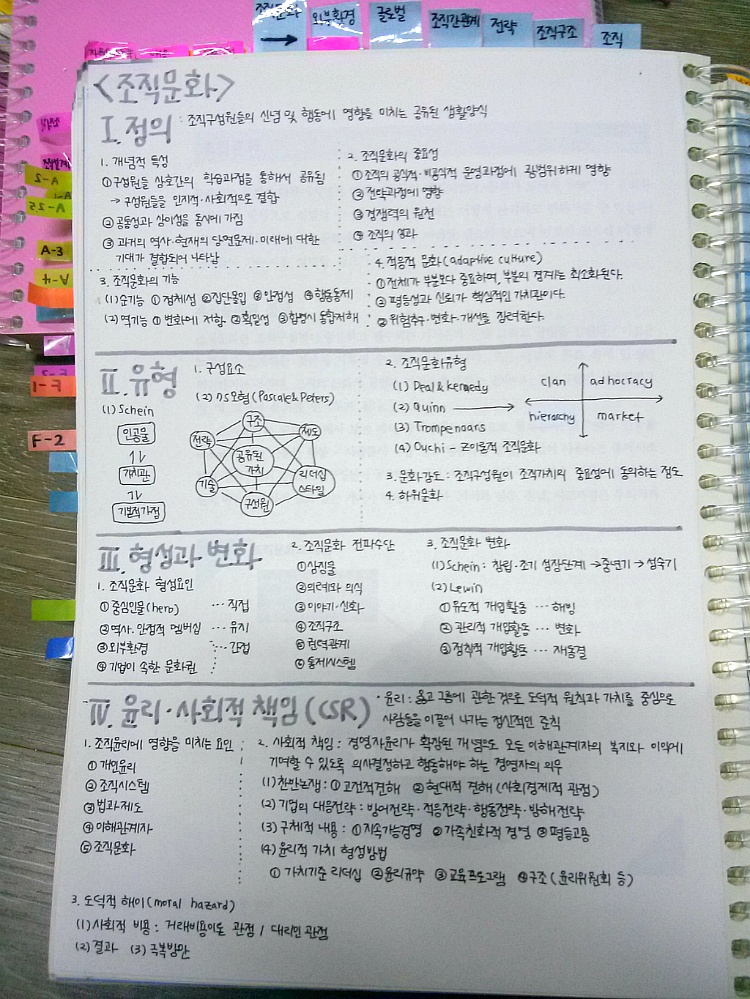 조직문화
외부환경
글로벌
조직간관계
전략
조직구조
조직
→
A-2
A-25
A-3
A-4
F-2
<조직문화>
I. 정의 : 조직구성원들의 신념 및 행동에 영향을 미치는 공유된 생활양식
1. 개념적 특성
① 구성원들 상호간의 학습과정을 통해서 공유됨
→ 구성원들을 인지적·사회적으로 결합
② 공통성과 상이성을 동시에 가짐
③ 과거의 역사·현재의 당면문제·미래에 대한
기대가 결합되어 나타남
2. 조직문화의 중요성
① 조직의 공식적·비공식적 운영과정에 광범위하게 영향
② 전략과정에 영향
③ 경쟁력의 원천
④ 조직의 성과
3. 조직문화의 기능
(1) 순기능 ① 정체성 ② 집단몰입 ③ 안정성 ④ 행동통제
(2) 역기능 ① 변화에 저항 ② 획일성 ③ 합병시 통합저해
4. 적응적 문화(adaptive culture)
① 전체가 부분보다 중요하며, 부분의 경계는 최소화된다.
② 평등성과 신뢰가 핵심적인 가치관이다.
③ 위험추구·변화·개선을 장려한다.
II. 유형
1. 구성요소
(1) Schein
인공물
↑↓
가치관
↑↓
기본적가정
(2) 7S모형(Pascale&Peters)
구조
전략
제도
공유된
가치
기술
리더십
스타일
구성원
2. 조직문화유형
(1) Deal & kennedy
(2) Quinn →
(3) Trompenaars
(4) Ouchi - Z이론적 조직문화
clan
adhocracy
hierarchy
market
3. 문화강도 : 조직구성원이 조직가치의 중요성에 동의하는 정도
4. 하위문화
III. 형성과 변화
1. 조직문화 형성요인
① 중심인물(hero) … 직접
② 역사. 안정적 멤버십 … 유지
③ 외부환경 … 간접
④ 기업이 속한 문화권
2. 조직문화 전파수단
① 상징물
② 의례와 의식
③ 이야기·신화
④ 조직구조
⑤ 권력관계
⑥ 통제시스템
3. 조직문화 변화
(1) Schein : 창립·초기 성장단계 → 중년기 → 성숙기
(2) Lewin
① 유도적 개입활동 … 해빙
② 관리적 개입활동 … 변화
③ 정착적 개입활동 … 재동결
IV. 윤리·사회적 책임(CSR)
· 윤리 : 옳고 그름에 관한 것으로 도덕적 원칙과 가치를 중심으로
사람들을 이끌어 나가는 정신적인 준칙
1. 조직윤리에 영향을 미치는 요인
① 개인윤리
② 조직시스템
③ 법과 제도
④ 이해관계자
⑤ 조직문화
2. 사회적 책임 : 경영자윤리가 확장된 개념으로 모든 이해관계자의 복지와 이익에
기여할 수 있도록 의사결정하고 행동해야 하는 경영자의 의무
(1) 찬반논쟁 : ① 고전적견해 ② 현대적 견해(사회경제적 관점)
(2) 기업의 대응전략 : 방어전략·적응전략·행동전략·방해전략
(3) 구체적 내용 : ① 지속가능경영 ② 가족친화적 경영 ③ 평등고용
(4) 윤리적 가치 형성방법
① 가치기준 리더십 ② 윤리규약 ③ 교육프로그램 ④ 구조(윤리위원회 등)
3. 도덕적 해이(moral hazard)
(1) 사회적 비용 : 거래비용이론 관점 / 대리인 관점
(2) 결과 (3) 극복방안